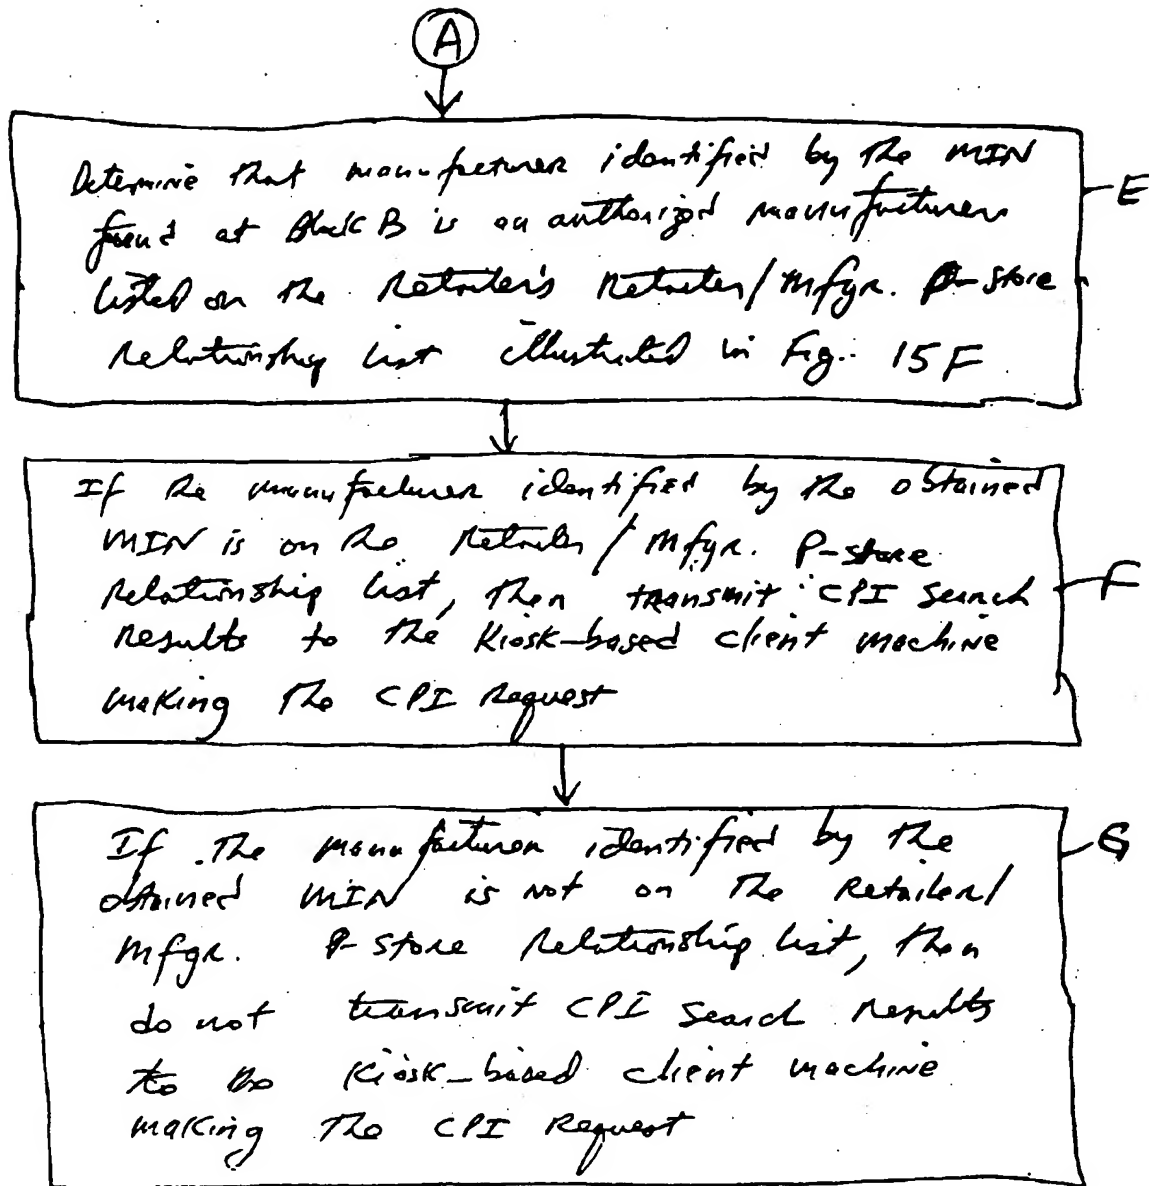 A
Determine that manufacturer identified by the MIN
found at Block B is an authorized manufacturer
listed on the Retailer's Retailer/Mfgr. P-store
relationship list illustrated in Fig. 15F
E
If the manufacturer identified by the obtained
MIN is on the Retailer/Mfgr. P-store
Relationship list, then transmit CPI search
results to the Kiosk-based client machine
making the CPI Request
F
If the manufacturer identified by the
obtained MIN is not on the Retailer/
Mfgr. P-store Relationship list, then
do not transmit CPI search results
to the Kiosk-based client machine
making the CPI Request
G